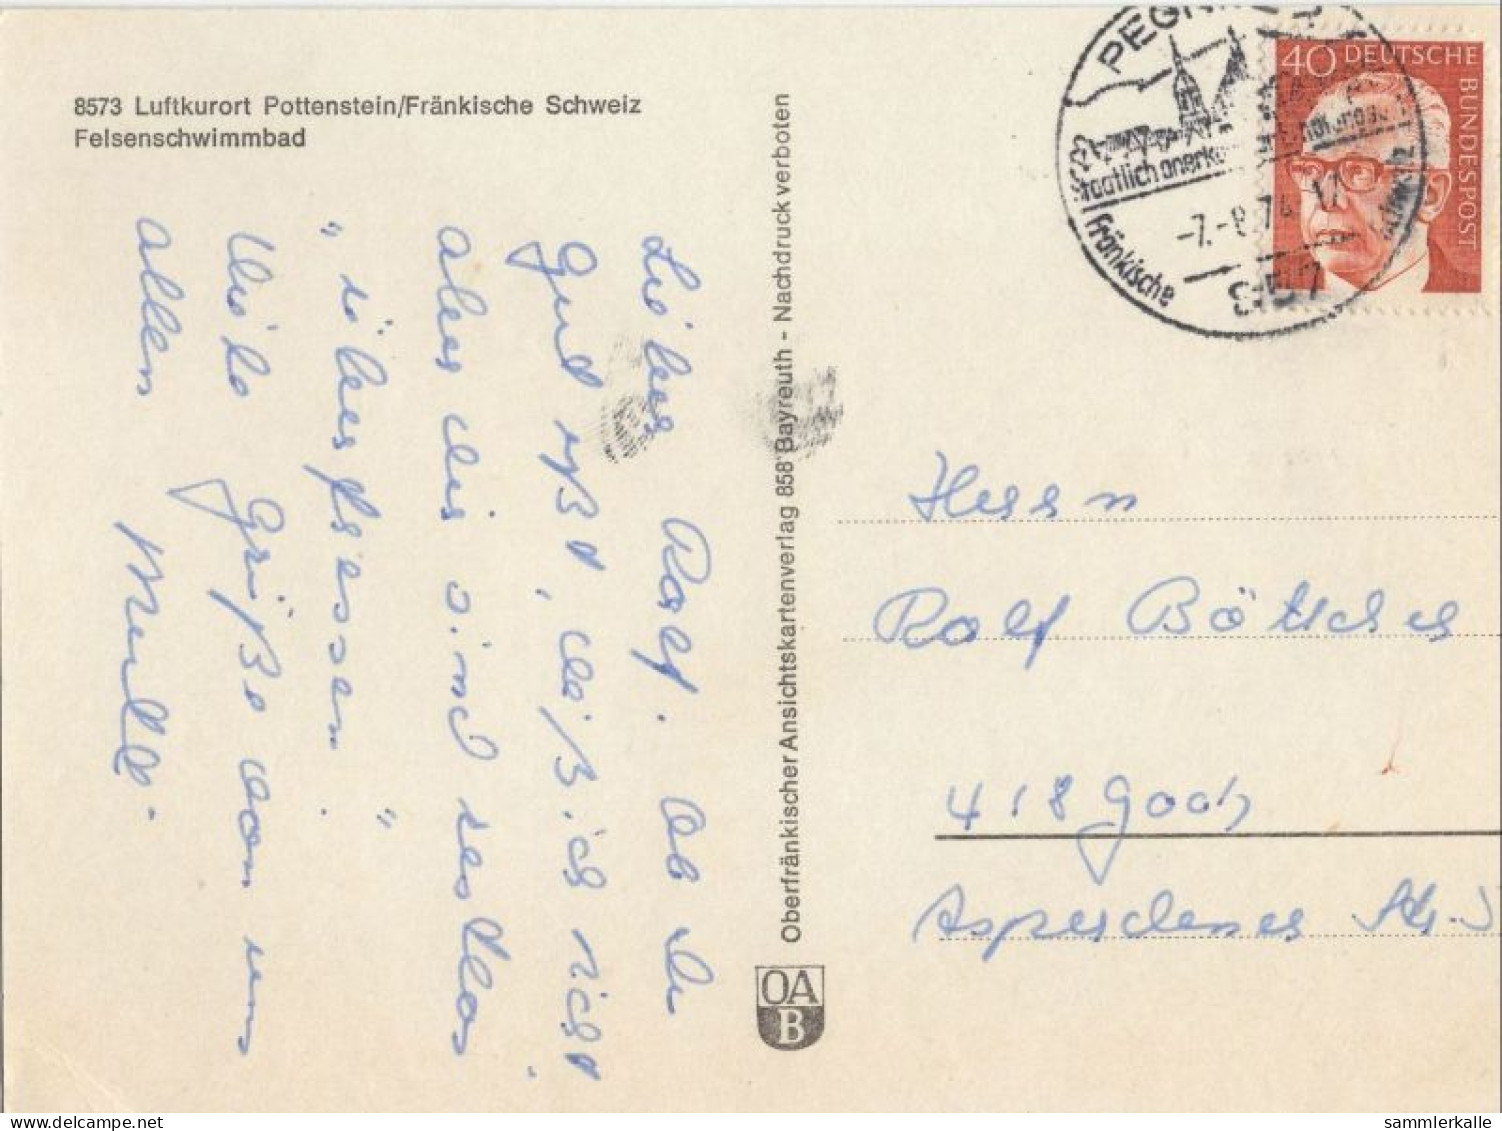 8573 Luftkurort Pottenstein/Fränkische Schweiz
Felsenschwimmbad
Lieber Rolf. Ob Du
Gut ißt, weiß ich nicht.
aber wir sind restlos
"überfressen."
Viele Grüße von uns
allen
Oberfränkischer Ansichtskartenverlag 858 Bayreuth - Nachdruck verboten
OA
B
PEGNITZ
staatlich
Fränkische
-7.-8.74
40 DEUTSCHE
BUNDESPOST
Herrn
Rolf Böttcher
418 Goch
Asperdener Str.
delcampe.net
sammlerkalle